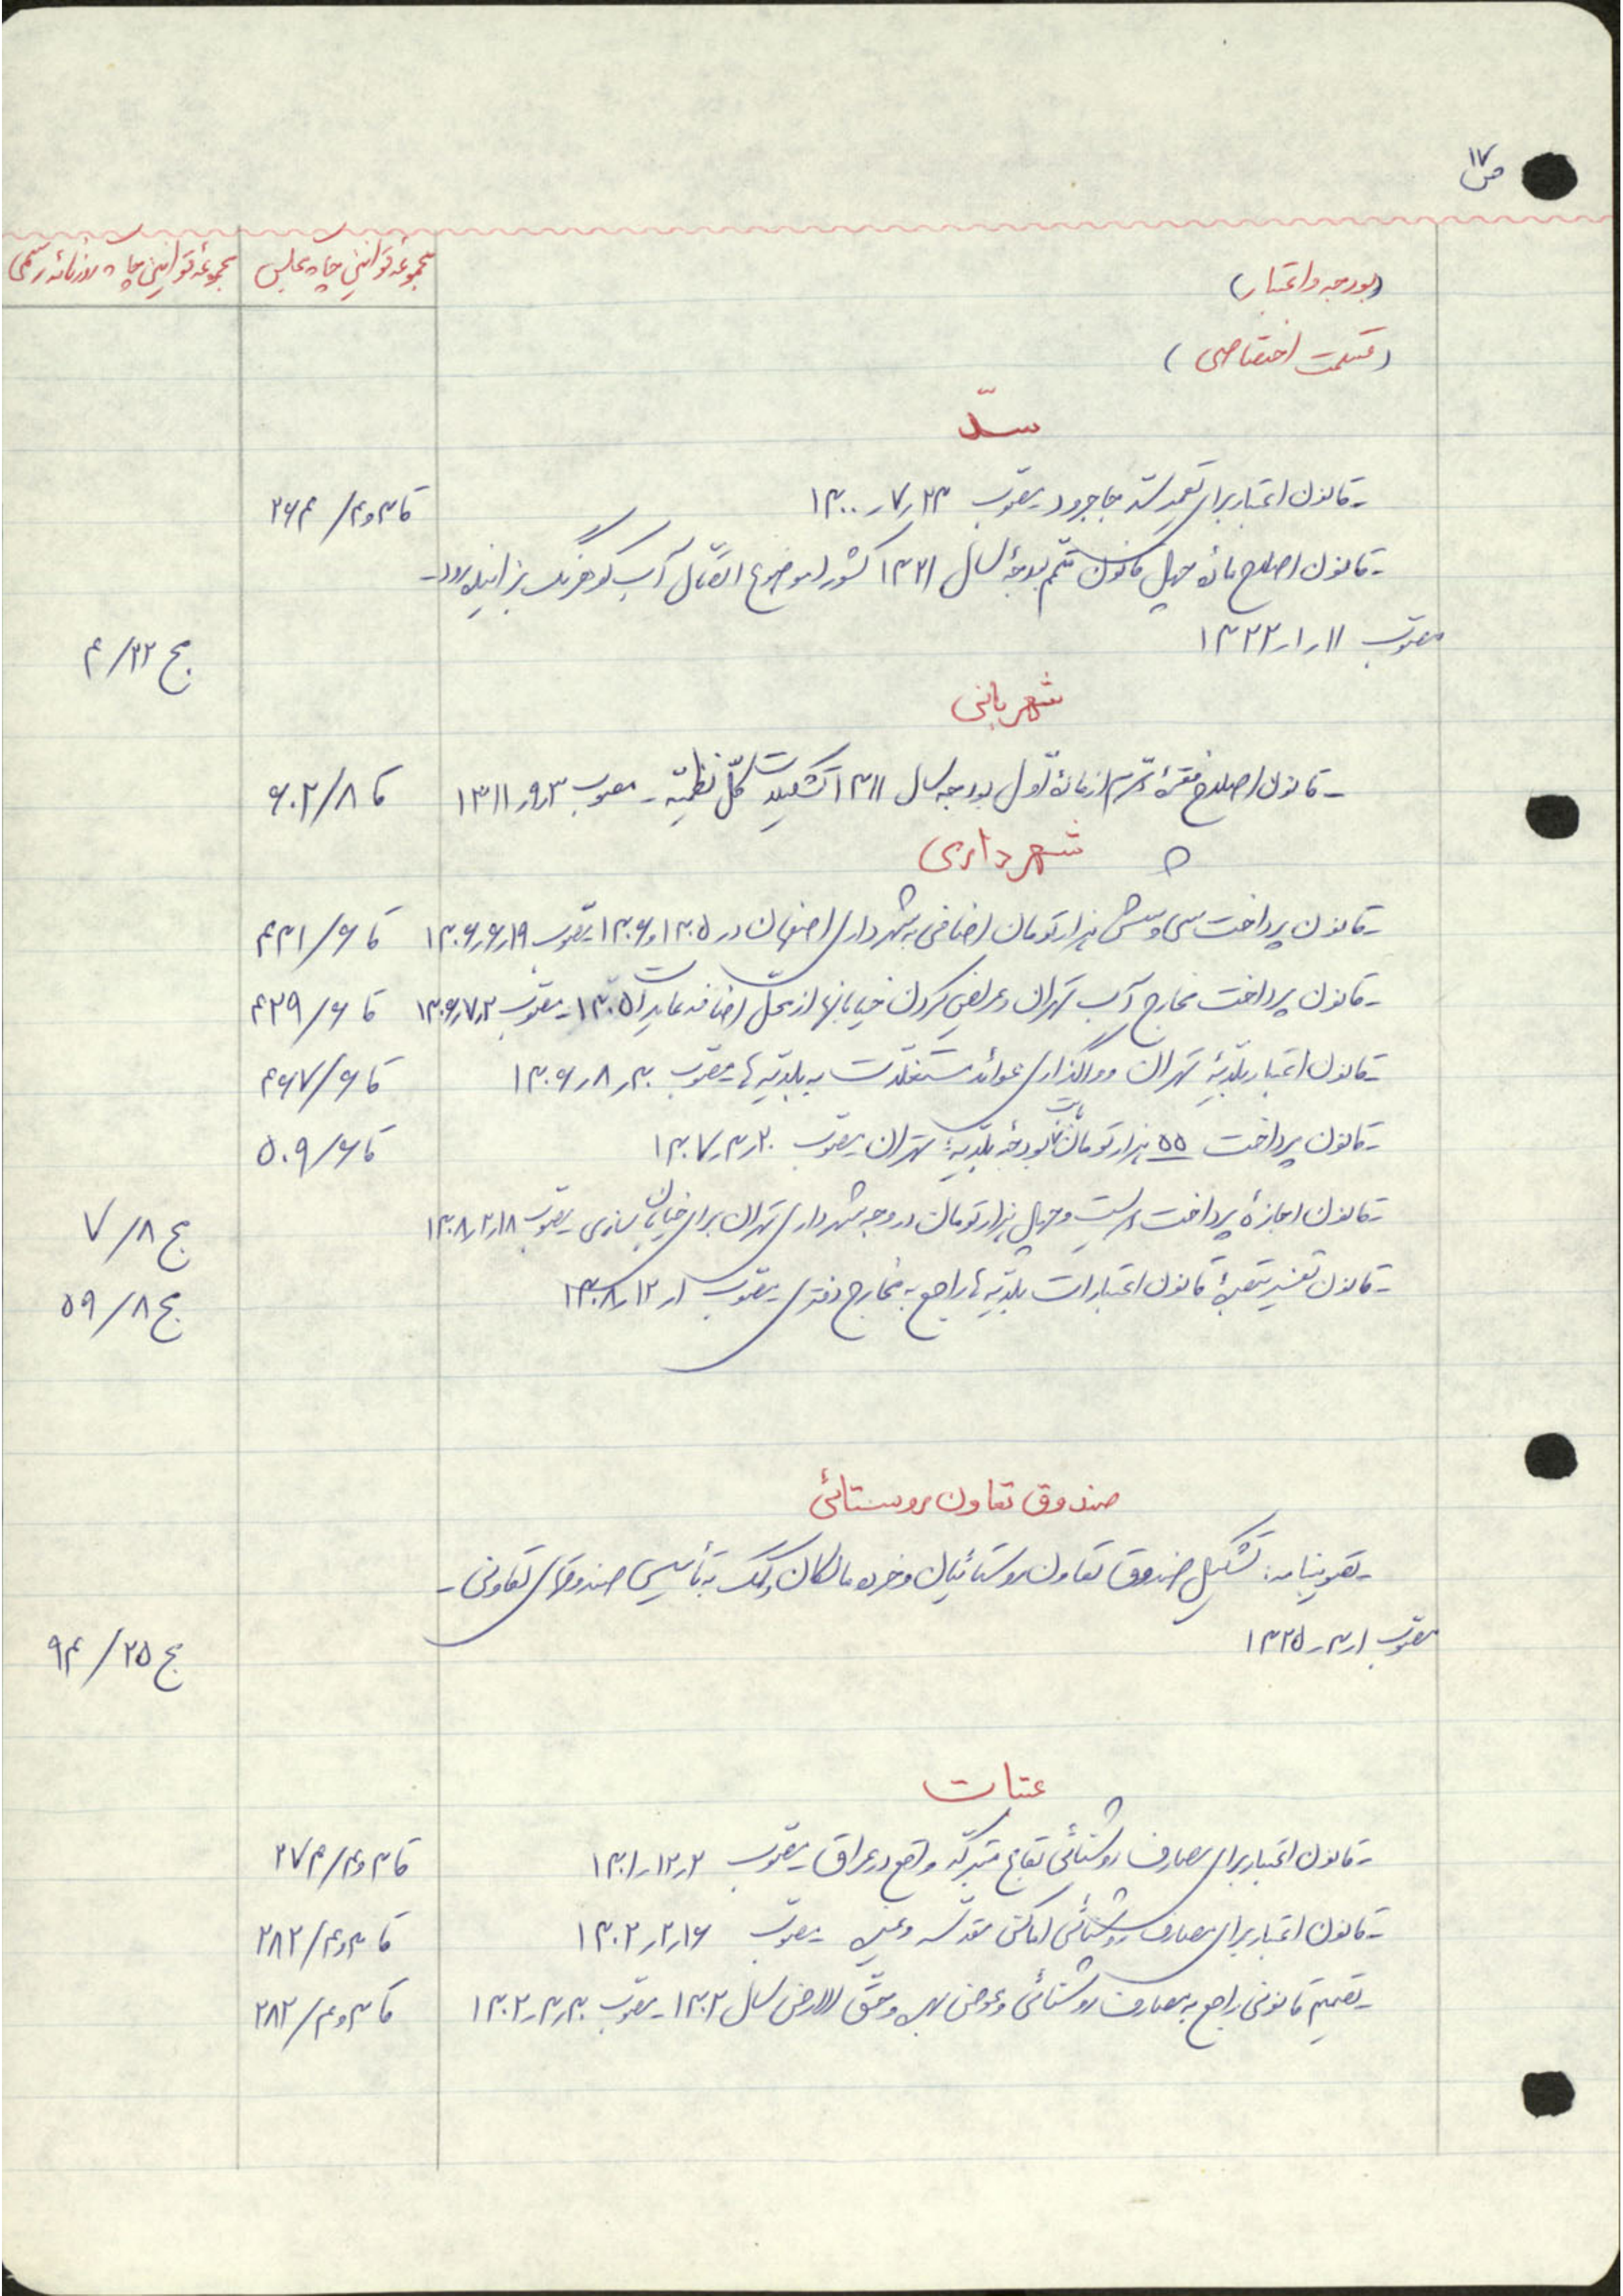 ص ۱۷
مجموعهٔ قوانین چاپ مجلس
مجموعهٔ قوانین چاپ روزنامه رسمی
(بودجه و اعتبار)
(قسمت اختصاصی)
سدّ
- قانون اعتبار برای تعمیر سد جاجرود - مصوب ۲۳ر۷ر۱۳۰۰ قا ۳و۴/ ۲۶۴
- قانون اصلاح مادهٔ چهل قانون متمم بودجهٔ سال ۱۳۲۱ کشور (موضوع اتصال آب کوهرنگ بزاینده رود -
مصوب ۱۱ر۱ر۱۳۲۲ مج ۲۲/ ۴
شهربانی
- قانون اصلاح فقرهٔ از مادهٔ اول بودجه سال ۱۳۱۱ تشکیلات کلّ نظمیّه - مصوب ۳ر۹ر۱۳۱۱ قا ۸/ ۶۰۲
شهرداری
- قانون پرداخت سی و شش هزار تومان اضافی به شهرداری اصفهان در ۱۳۰۵ و ۱۳۰۶ - مصوب ۱۹ر۶ر۱۳۰۶ قا ۶/ ۴۳۱
- قانون پرداخت مخارج آب تهران و عریض کردن خیابانها از محل اضافه عایدات ۱۳۰۵ - مصوب ۲ر۷ر۱۳۰۶ قا ۶/ ۴۳۹
- قانون اعتبار بلدیّهٔ تهران و واگذاری عوائد مستغلات به بلدیّه ها - مصوب ۳۰ر۸ر۱۳۰۶ قا ۶/ ۴۶۷
- قانون پرداخت ۵۵ هزار تومان بابت بودجهٔ بلدیّهٔ تهران - مصوب ۲۰ر۳ر۱۳۰۷ قا ۶/ ۵۰۹
- قانون اجازهٔ پرداخت دویست و چهل هزار تومان در وجه شهرداری تهران برای خیابان سازی - مصوب ۱۸ر۲ر۱۳۰۸ مج ۸/ ۷
- قانون تفسیر قانون اعتبارات بلدیّه ها راجع به مخارج دفتری - مصوب ۱ر۱۲ر۱۳۰۸ مج ۸/ ۵۹
صندوق تعاون روستائی
- تصویبنامه: تشکیل صندوق تعاون روستائیان و خرده مالکان و کمک به تأسیس صندوقهای تعاونی -
مصوب ۱ر۳ر۱۳۲۵ مج ۲۵/ ۹۴
عتبات
- قانون اعتبار برای مصارف روشنائی بقاع متبرکه واقع در عراق - مصوب ۲ر۱۲ر۱۳۰۱ قا ۳و۴/ ۲۷۴
- قانون اعتبار برای مصارف روشنائی اماکن مقدسه و غیره - مصوب ۱۶ر۲ر۱۳۰۲ قا ۳و۴/ ۲۸۲
- تصمیم قانونی راجع به مصارف روشنائی و عوض و حق الارض سال ۱۳۰۲ - مصوب ۳۰ر۳ر۱۳۰۲ قا ۳و۴/ ۲۸۲